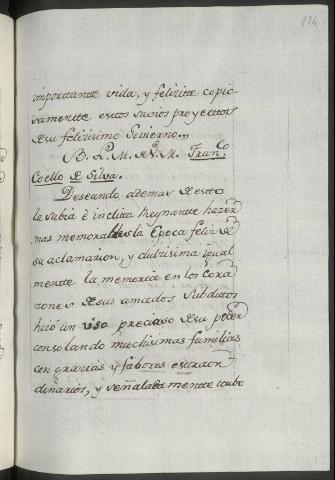 124
importtantte vida, y felicitte copio-
samentte esttos sucios proyecttos
de su felicisimo Govierno.,,
B. L. M. de V. M. Franco
Coello de Silva.
Deseando ademas de estto
la sabia è inclitta Reynantte hazer
mas memorable la Epoca feliz de
su aclamazion, y dulcisima igual
mentte la memoria en los Cora
zones de sus amados Subditos
hizo un uso precioso de su poder
consolando muchisimas familias
con grazias y fabores esttraor
dinarios, y señaladamentte ttubo